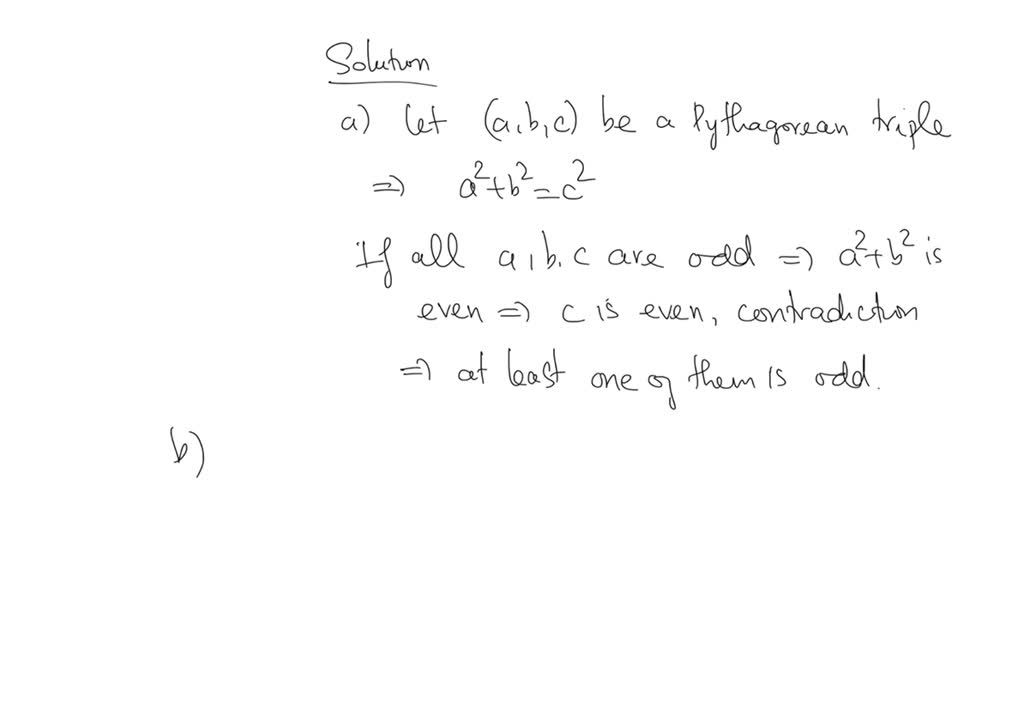 Solution
a) let (a,b,c) be a Pythagorean triple
=> a²+b²=c²
If all a,b,c are odd => a²+b² is
even => c is even, contradiction
=> at least one of them is odd.
b)